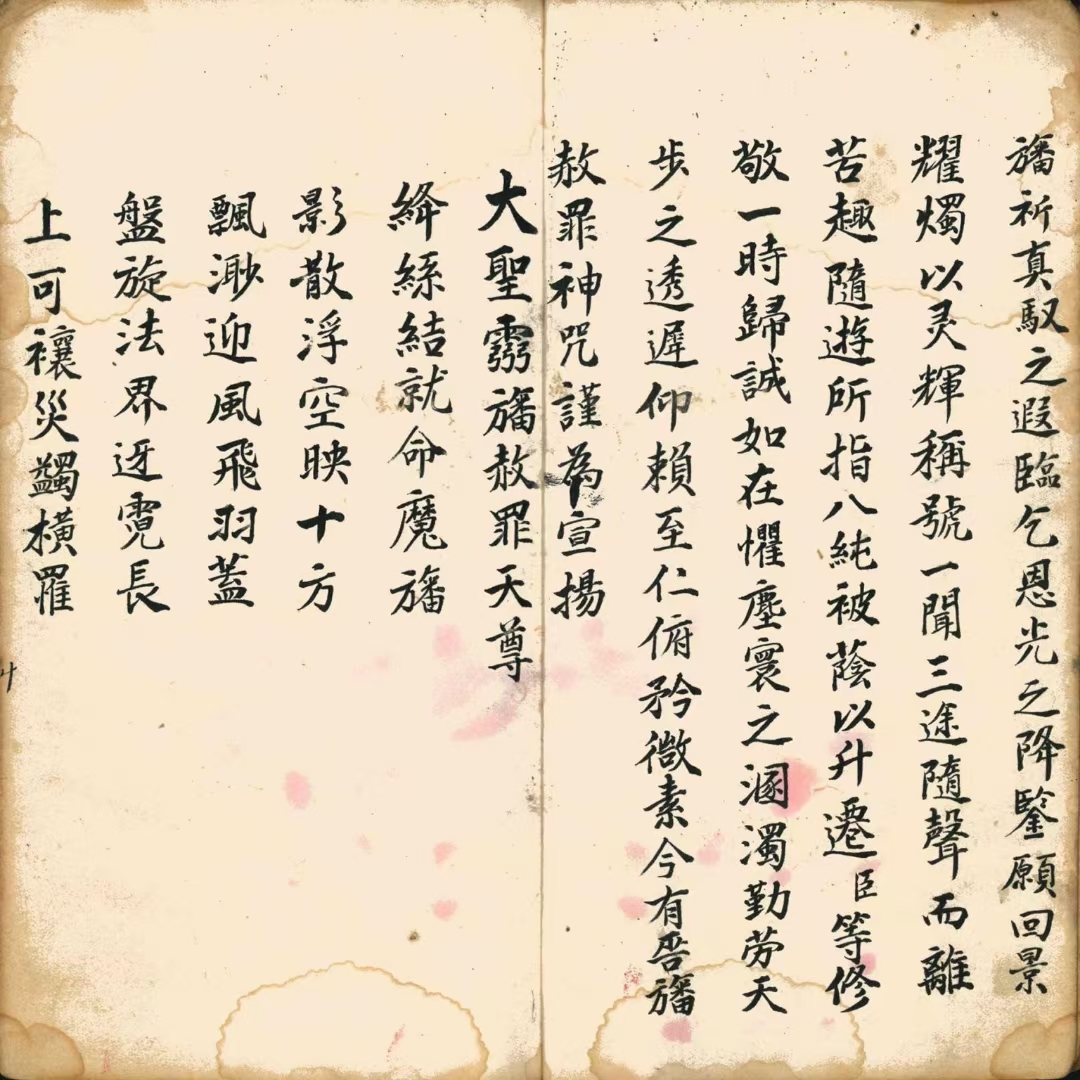 旛祈真馭之遐臨乞恩光之降鑒願回景
耀燭以灵輝稱號一聞三途隨聲而離
苦趣隨遊所指八純被蔭以升遷臣等修
敬一時歸誠如在懼塵寰之溷濁勤劳天
步之透遲仰賴至仁俯矜微素今有告旛
赦罪神咒謹為宣揚
大聖靈旛赦罪天尊
絳絲結就命魔旛
影散浮空映十方
飄渺迎風飛羽蓋
盤旋法界迓霓長
上可禳災蠲橫罹